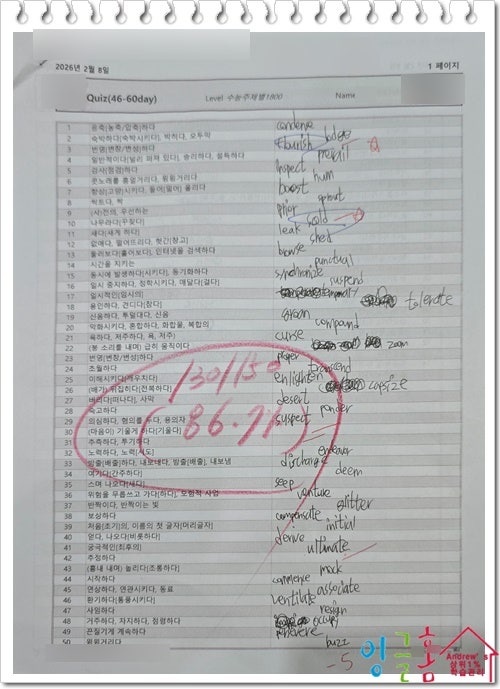 2026년 2월 8일 1 페이지
Quiz(46-60day) Level 수능주제별1800 Name
1 응축[농축/압축]하다 condense
2 숙박하다[숙박시키다], 박히다, 오두막 lodge
3 번영[번창/번성]하다 flourish
4 일반적이다[널리 퍼져 있다], 승리하다, 설득하다 prevail
5 검사[점검]하다 inspect
6 콧노래를 흥얼거리다, 윙윙거리다 hum
7 향상[고양]시키다, 들어[밀어] 올리다 boost
8 싹트다, 싹 sprout
9 [사]전의, 우선하는 prior
10 나무라다[꾸짖다] scold
11 새다[새게 하다] leak
12 없애다, 떨어뜨리다, 헛간[창고] shed
13 둘러보다[훑어보다], 인터넷을 검색하다 browse
14 시간을 지키는 punctual
15 동시에 발생하다[시키다], 동기화하다 synchronize
16 일시 중지하다, 정학시키다, 매달다[걸다] suspend
17 일시적인[임시의] temporary
18 용인하다, 견디다[참다] tolerate
19 신음하다, 투덜대다, 신음 groan
20 악화시키다, 혼합하다, 화합물, 복합의 compound
21 욕하다, 저주하다, 욕, 저주 curse
22 (붕 소리를 내며) 급히 움직이다 zoom
23 번영[번창/번성]하다 prosper
24 초월하다 transcend
25 이해시키다[깨우치다] enlighten
26 (배가) 뒤집히다[전복하다] capsize
27 버리다[떠나다], 사막 desert
28 숙고하다 ponder
29 의심하다, 혐의를 두다, 용의자 suspect
30 (마음이) 기울게 하다[기울다]
31 추측하다, 투기하다
32 노력하다, 노력[시도] endeavor
33 방출[배출]하다, 내보내다, 방출[배출], 내보냄 discharge
34 여기다[간주하다] deem
35 스며 나오다[새다] seep
36 위험을 무릅쓰고 가다[하다], 모험적 사업 venture
37 반짝이다, 반짝이는 빛 glitter
38 보상하다 compensate
39 처음[초기]의, 이름의 첫 글자[머리글자] initial
40 얻다, 나오다[비롯하다] derive
41 궁극적인[최후의] ultimate
42 추정하다
43 (흉내 내며) 놀리다[조롱하다] mock
44 시작하다 commence
45 연상하다, 연관시키다, 동료 associate
46 환기하다[통풍시키다] ventilate
47 사임하다 resign
48 거주하다, 차지하다, 점령하다 occupy
49 끈질기게 계속하다 persevere
50 윙윙거리다 buzz
130/150
(86.77)
-5
영글홈
Andrew's
상위1%
학습관리